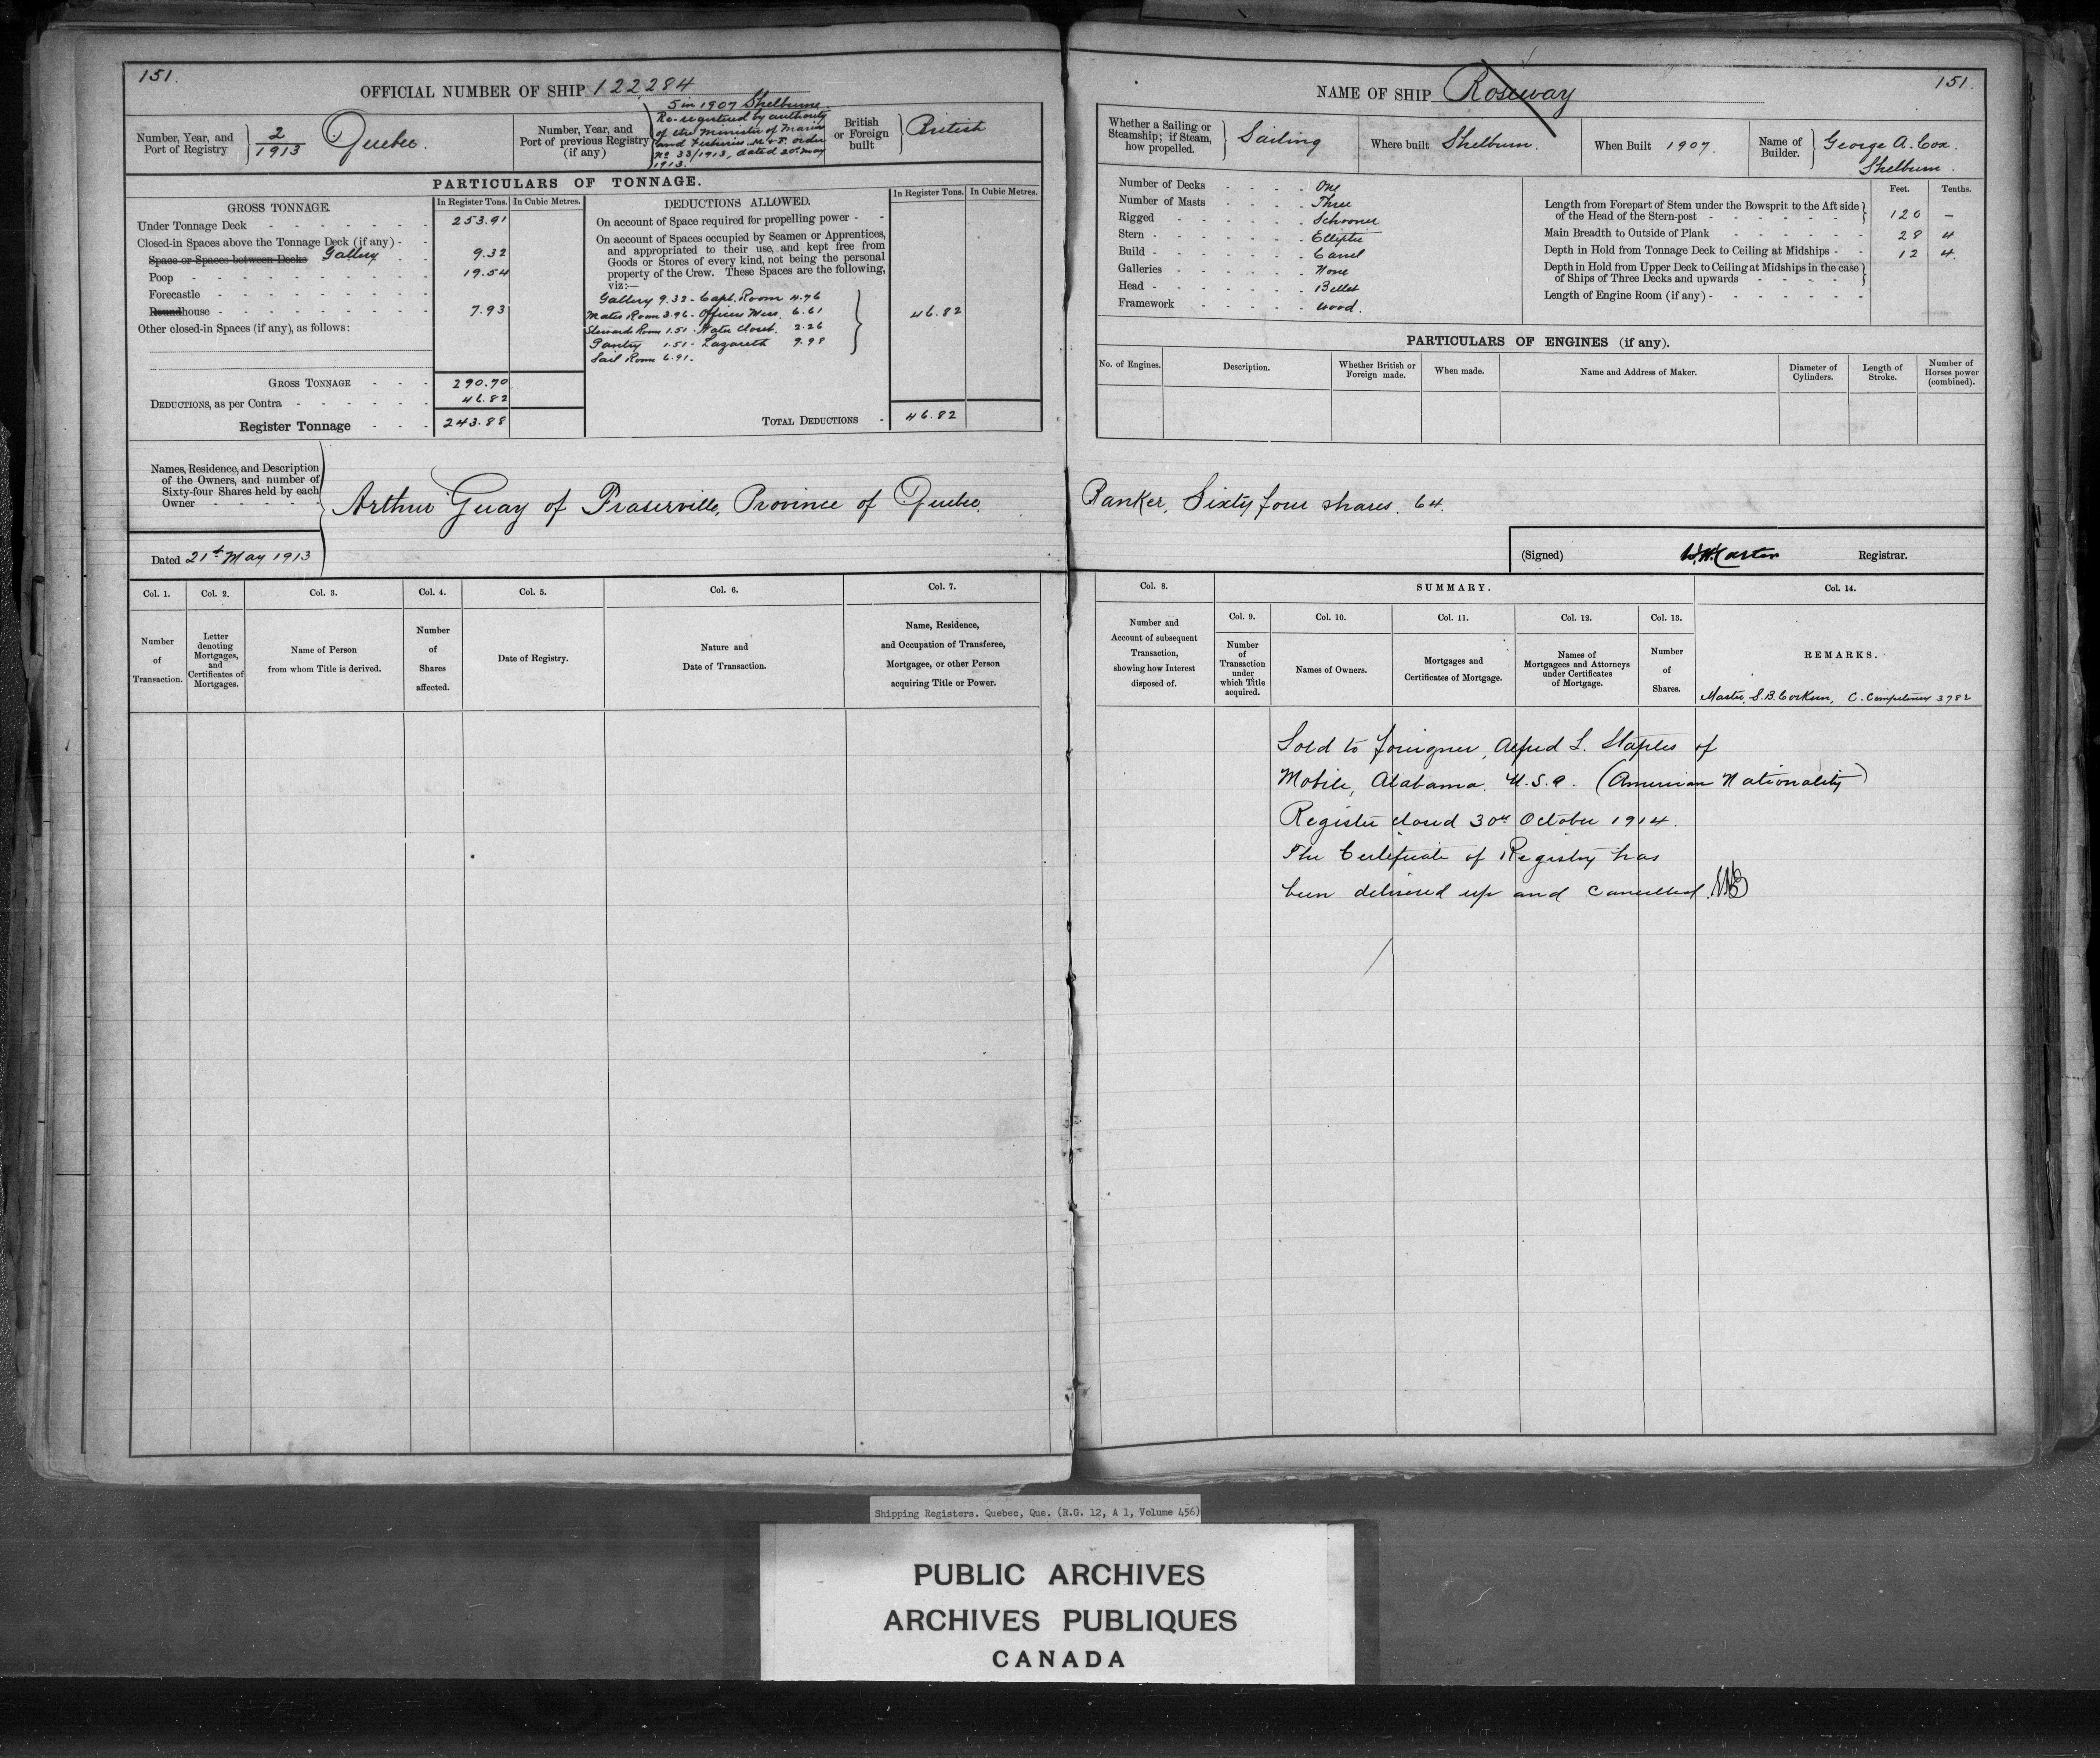 151.
OFFICIAL NUMBER OF SHIP 122,284
Number, Year, and
Port of Registry
2/1913 Quebec.
Number, Year, and
Port of previous Registry
(if any)
5 in 1907 Shelburne.
Re-registered by authority
of the Minister of Marine
and Fisheries. M & F. order
No 33/1913, dated 20th May
1913.
British
or Foreign
built
British
PARTICULARS OF TONNAGE.
GROSS TONNAGE.
In Register Tons.
In Cubic Metres.
Under Tonnage Deck 253.91
Closed-in Spaces above the Tonnage Deck (if any)
Space or Spaces between Decks Gallery 9.32
Poop 19.54
Forecastle
Roundhouse 7.93
Other closed-in Spaces (if any), as follows:
GROSS TONNAGE 290.70
DEDUCTIONS, as per Contra 46.82
Register Tonnage 243.88
DEDUCTIONS ALLOWED.
In Register Tons.
In Cubic Metres.
On account of Space required for propelling power
On account of Spaces occupied by Seamen or Apprentices,
and appropriated to their use, and kept free from
Goods or Stores of every kind, not being the personal
property of the Crew. These Spaces are the following,
viz:—
Gallery 9.32 - Capt. Room 4.76
Mates Room 3.96 - Officers Mess. 6.61
Stewards Room 1.51 - Water Closet. 2.26
Pantry 1.51 - Lazareth 9.98
Sail Room 6.91.
46.82
TOTAL DEDUCTIONS 46.82
Names, Residence, and Description
of the Owners, and number of
Sixty-four Shares held by each
Owner
Arthur Guay of Fraserville, Province of Quebec.
Dated 21st May 1913
Col. 1.
Number
of
Transaction.
Col. 2.
Letter
denoting
Mortgages,
and
Certificates of
Mortgages.
Col. 3.
Name of Person
from whom Title is derived.
Col. 4.
Number
of
Shares
affected.
Col. 5.
Date of Registry.
Col. 6.
Nature and
Date of Transaction.
Col. 7.
Name, Residence,
and Occupation of Transferee,
Mortgagee, or other Person
acquiring Title or Power.
NAME OF SHIP Roseway
151.
Whether a Sailing or
Steamship; if Steam,
how propelled.
Sailing
Where built Shelburn.
When Built 1907.
Name of
Builder.
George A. Cox.
Shelburn.
Number of Decks One
Number of Masts Three
Rigged Schooner
Stern Elliptic
Build Carvel
Galleries None
Head Billet
Framework Wood.
Feet. Tenths.
Length from Forepart of Stem under the Bowsprit to the Aft side
of the Head of the Stern-post 120 —
Main Breadth to Outside of Plank 28 4
Depth in Hold from Tonnage Deck to Ceiling at Midships 12 4.
Depth in Hold from Upper Deck to Ceiling at Midships in the case
of Ships of Three Decks and upwards
Length of Engine Room (if any)
PARTICULARS OF ENGINES (if any).
No. of Engines.
Description.
Whether British or
Foreign made.
When made.
Name and Address of Maker.
Diameter of
Cylinders.
Length of
Stroke.
Number of
Horses power
(combined).
Banker, Sixty four shares. 64.
(Signed) Registrar.
Col. 8.
Number and
Account of subsequent
Transaction,
showing how Interest
disposed of.
SUMMARY.
Col. 9.
Number
of
Transaction
under
which Title
acquired.
Col. 10.
Names of Owners.
Col. 11.
Mortgages and
Certificates of Mortgage.
Col. 12.
Names of
Mortgagees and Attorneys
under Certificates
of Mortgage.
Col. 13.
Number
of
Shares.
Col. 14.
REMARKS.
Master, S.B. C. Competency 3782
Sold to foreigner, Alfred L. Staples of
Mobile, Alabama. U.S.A. (American Nationality)
Register closed 30th October 1914.
The Certificate of Registry has
been delivered up and cancelled.
Shipping Registers. Quebec, Que. (R.G. 12, A 1, Volume 456)
PUBLIC ARCHIVES
ARCHIVES PUBLIQUES
CANADA